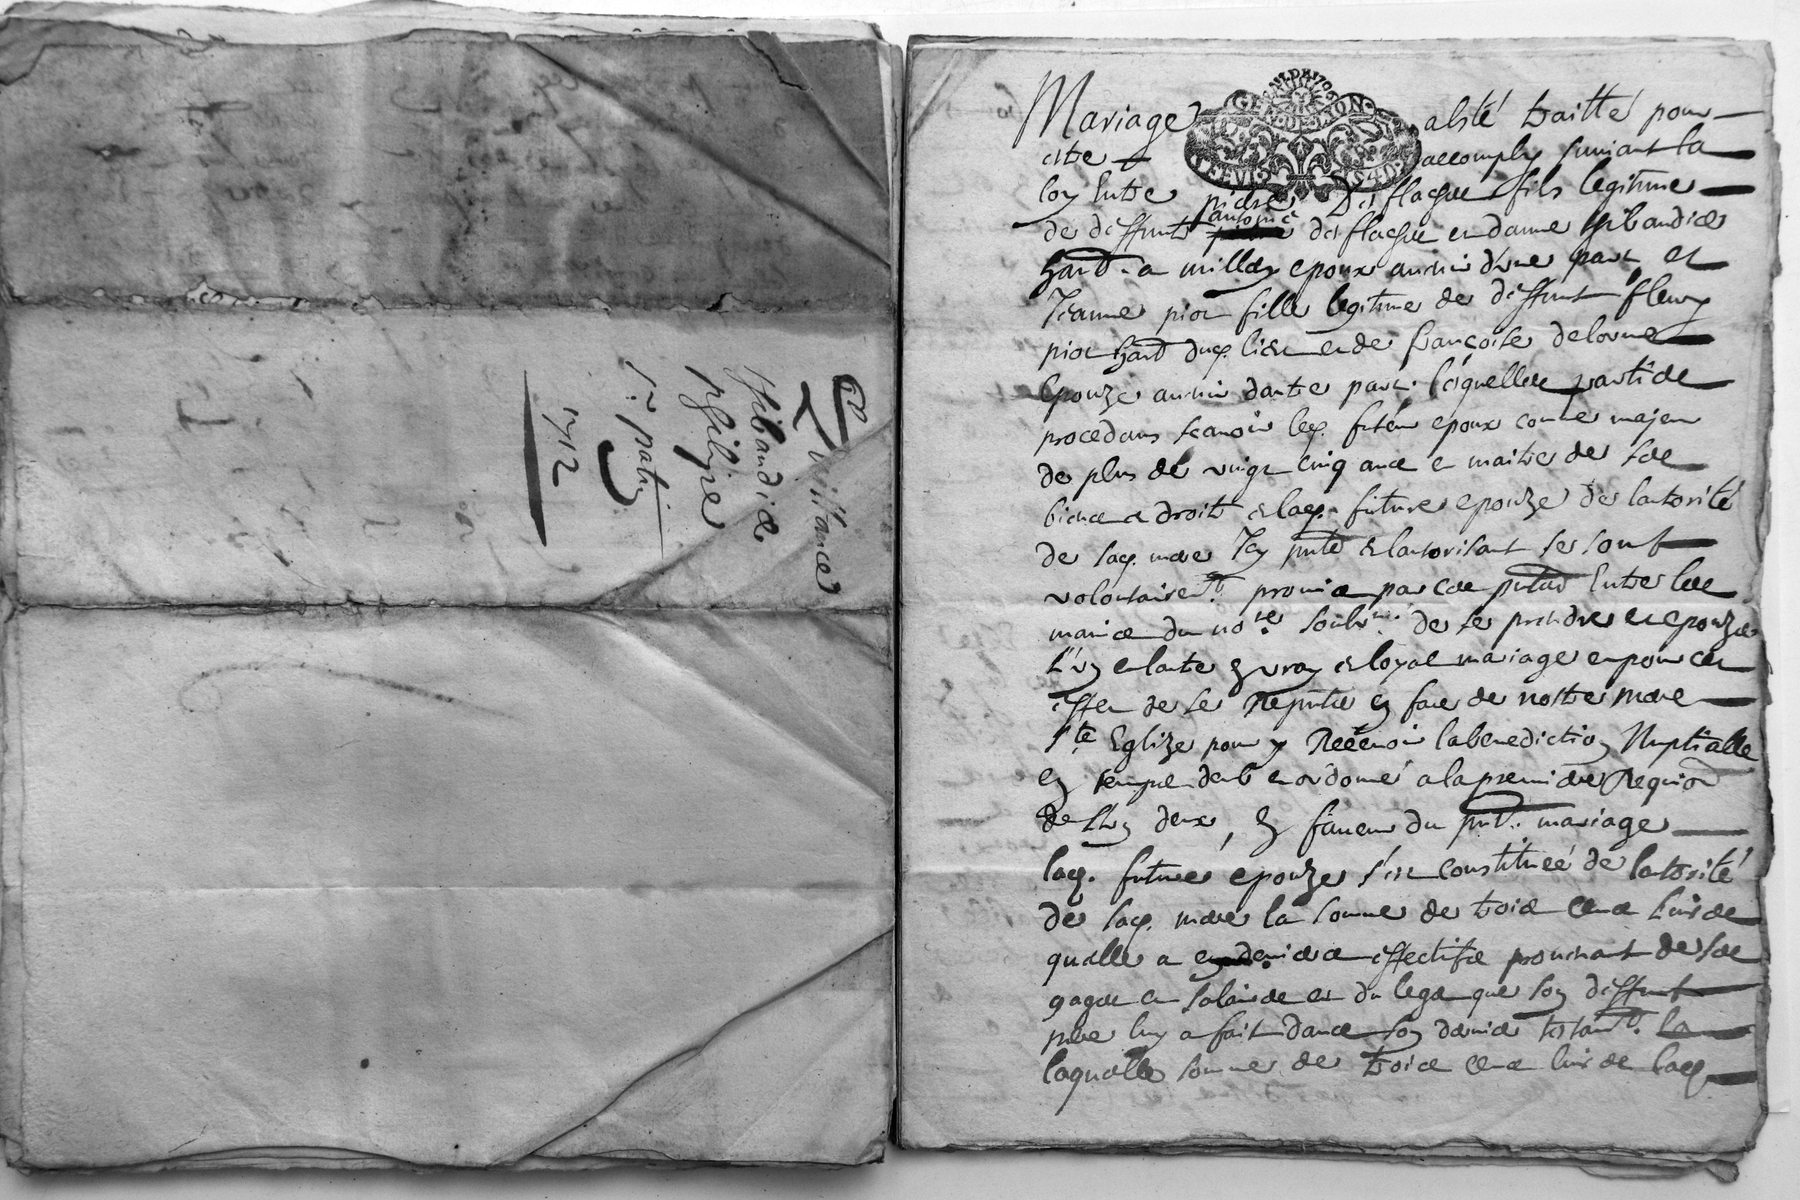 quittance
thibaudier
philipe
1712
Mariage a esté traitté pour
estre accomply suivant la
loy Entre pierre Desflache fils legitime
de deffunts antoine desflache et danne thibaudier
hant. a milley epoux au civil d'une part et
Jeanne piot fille legitime de deffunt fleury
piot hant dud. lieu et de françoise delorme
Epouze au civil dautre part. lesquelles parties
procedans scavoir led. futeur epoux comme majeur
de plus de vingt cinq ans et maitre de ses
biens et droits et lad. future epouze de lautorité
de sad. mere Icy pnte et lautorisant se sont
volontairemt. promis par ces pntes Entre les
mains du nore. soubné. de se prendre et epouzer
l'un et lautre en vray et loyal mariage et pour cet
effet de se repnter en face de nostre mere
Ste Eglize pour y Recevoir la benediction Nuptialle
en temps deub et ordonné a la premiere Requiston
de l'un deux, En faveur du pnt. mariage
lad. future epouze s'est constituée de lautorité
de sad. mere la somme de trois cens livres
qu'elle a en deniers effectifs provenant de ses
gages et salaires et du legs que son deffunt
pere luy a fait dans son dernier testamt. la
laquelle somme de trois cens livres lad.